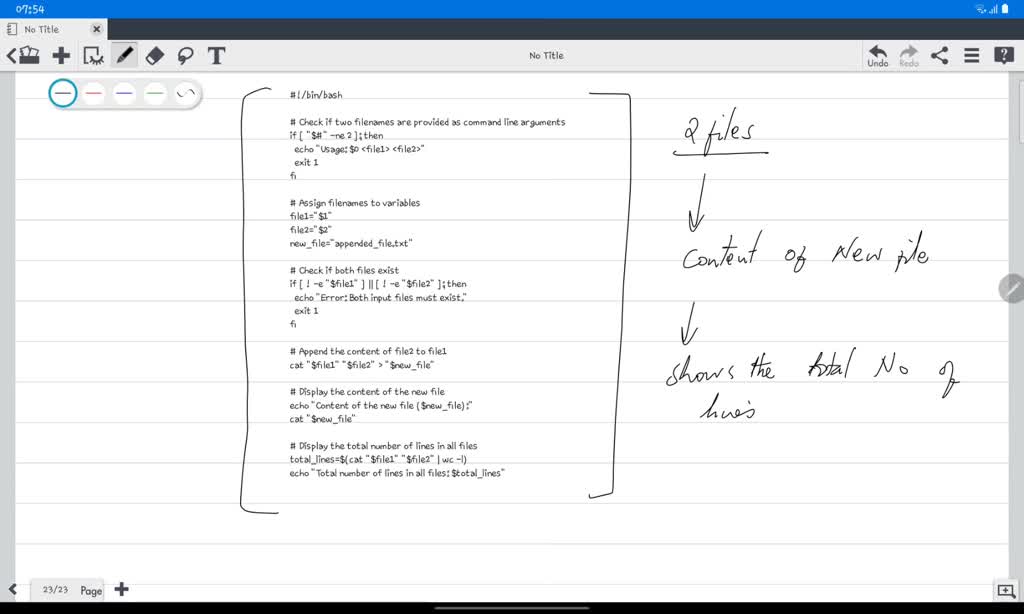 07:54
No Title
No Title
Undo
Redo
#!/bin/bash
# Check if two filenames are provided as command line arguments
if [ "$#" -ne 2 ]; then
echo "Usage: $0 <file1> <file2>"
exit 1
fi
# Assign filenames to variables
file1="$1"
file2="$2"
new_file="appended_file.txt"
# Check if both files exist
if [ ! -e "$file1" ] || [ ! -e "$file2" ]; then
echo "Error: Both input files must exist."
exit 1
fi
# Append the content of file2 to file1
cat "$file1" "$file2" > "$new_file"
# Display the content of the new file
echo "Content of the new file ($new_file):"
cat "$new_file"
# Display the total number of lines in all files
total_lines=$(cat "$file1" "$file2" | wc -l)
echo "Total number of lines in all files: $total_lines"
2 files
Content of New file
shows the total No of
lines
23/23 Page